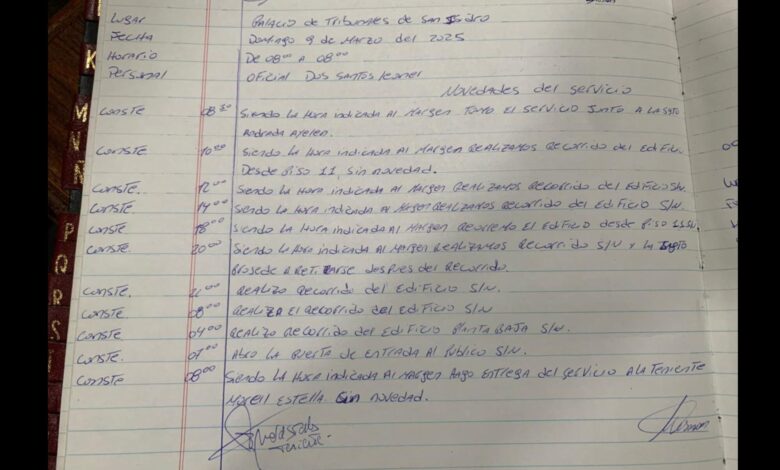 Lugar Palacio de Tribunales de San Isidro
Fecha Domingo 9 de Marzo del 2025
Horario De 08⁰⁰ A 08⁰⁰
Personal Oficial Dos Santos Leonel
Novedades del servicio
Conste 08³⁰ Siendo la Hora indicada Al Margen Tomo El Servicio Junto A La Sgto
Andrada Ayelen.
Conste 10⁰⁰ Siendo la Hora indicada Al Margen Realizamos Recorrido del Edific.
Desde piso 11, sin novedad.
Conste. 12⁰⁰ Siendo la Hora indicada Al Margen Realizamos Recorrido del Edificio S/N.
Conste. 14⁰⁰ Siendo la Hora indicada Al Margen Realizamos Recorrido del Edificio S/N.
Conste 18⁰⁰ Siendo la Hora indicada Al Margen Recorremo El Edificio desde piso
Conste. 20⁰⁰ Siendo la Hora indicada Al Margen Realizamos Recorrido S/N y la Sgto
Prosede A Retirarse despues del Recorrido.
Conste. Realizo Recorrido del Edificio S/N.
Conste. Realiza El Recorrido del Edificio S/N.
Conste. 04⁰⁰ Realizo Recorrido del Edificio Planta Baja S/N.
Conste. 07⁰⁰ Abro la Puerta de Entrada Al Publico S/N.
Conste 08⁰⁰ Siendo la Hora indicada Al Margen Ago Entrega del Servicio A la Teniente
Estella Sin Novedad.
Teniente.
K
M
N
Ñ
P
Q
R
S
T